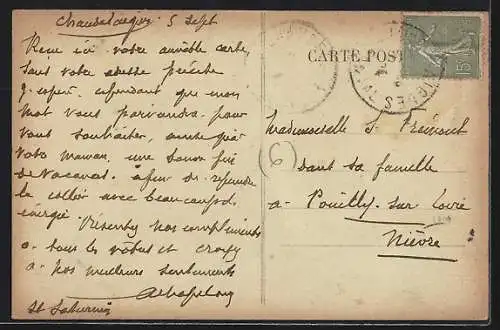 Chaudesaigues 5 Sept
Reçu ici votre aimable carte,
sans votre adresse précise
J'espère cependant que mon
mot vous parviendra pour
vous souhaiter, ainsi qu'à
votre maman, une bonne fin
de vacances afin de reprendre
le collier avec beaucoup d'
énergie. Présentez nos compliments
à tous les vôtres et croyez
à nos meilleurs sentiments
St Saturnin
CARTE POST
15
Mademoiselle S. Frémont
dans sa famille
à Pouilly sur Loire
Nièvre
6